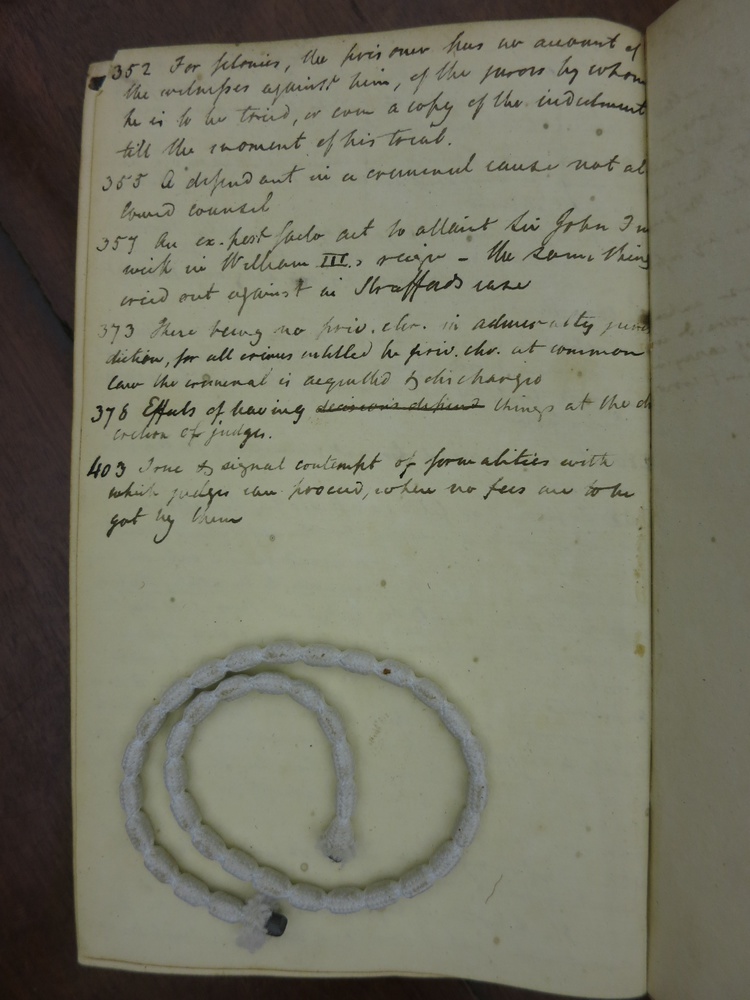 352 For felonies, the prisoner has no account of
the witnesses against him, of the jurors by whom
he is to be tried, or even a copy of the indictment
till the moment of his trial.
355 A defendant in a criminal cause not al
lowed counsel
357 An ex. post facto act to attaint Sir John
wick in William III.s reign – the same thing
cried out against in Straffords case
373 There being no priv. cler. in admiralty juris
diction, for all crimes intitled to priv. cler. at common
law the criminal is acquitted & discharged
378 Effects of leaving decisions depend things at the di
cretion of judges.
403 True & signal contempt of formalities with
which judges can proceed, where no fees are to be
got by them